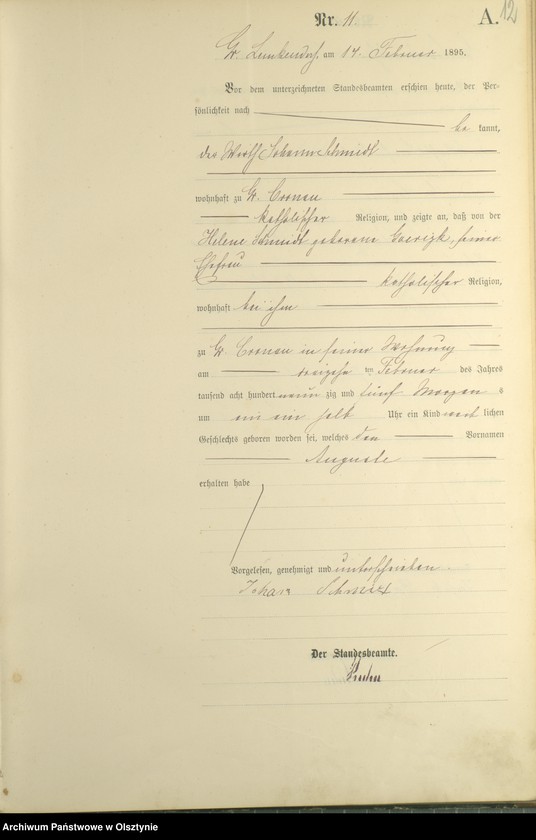 12
Nr. 11. A.
am 14. Februar 1895.
Vor dem unterzeichneten Standesbeamten erschien heute, der Per-
sönlichkeit nach
be kannt,
der Wirth Johann Schmidt
wohnhaft zu Gr. Cronau
katholischer Religion, und zeigte an, daß von der
Helene Schmidt geborene seiner
Ehefrau
katholischer Religion,
wohnhaft bei ihm
zu Gr. Cronau in seiner Wohnung
am dreizehn ten Februar des Jahres
tausend acht hundert neun zig und fünf Morgens
um ein ein halb Uhr ein Kind weib lichen
Geschlechts geboren worden sei, welches den Vornamen
Auguste
erhalten habe
Vorgelesen, genehmigt und unterschrieben.
Johan
Der Standesbeamte.
Archiwum Państwowe w Olsztynie